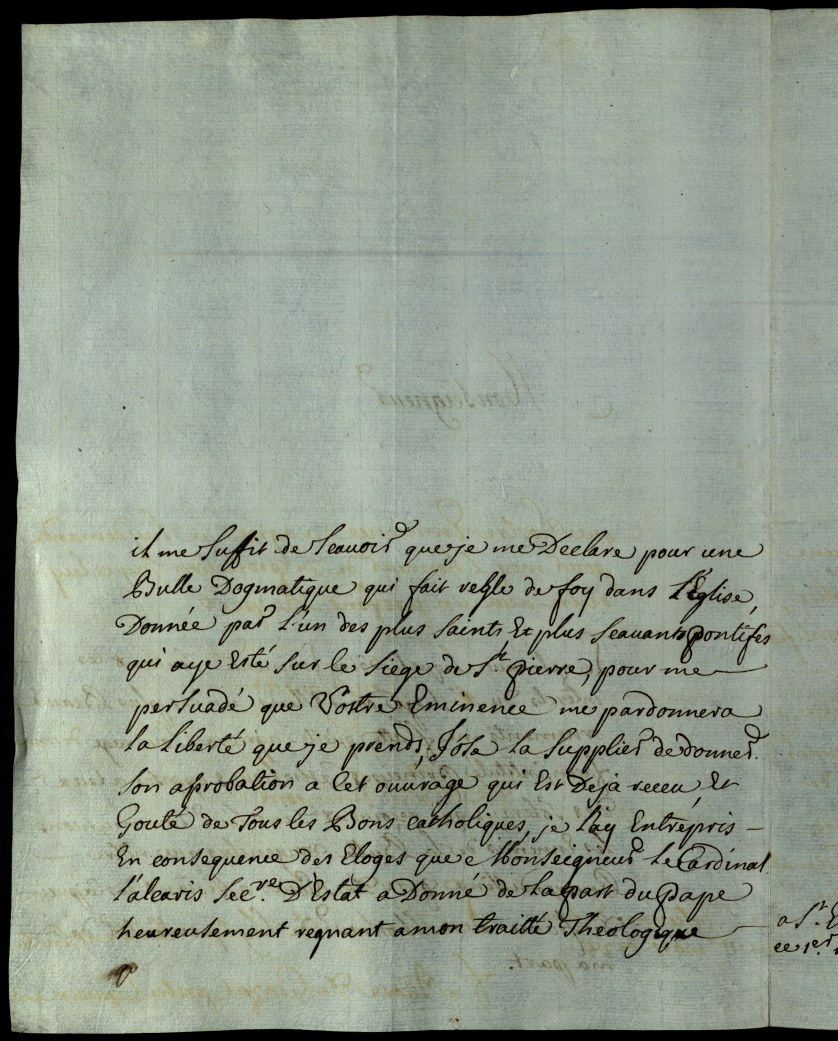 il me suffit de scavoir que je me Declare pour une
Bulle Dogmatique qui fait regle de foy dans L'Eglise,
Donnée par L'un des plus saints Et plus scavants pontifes
qui aye Esté sur le siege de St. pierre, pour me
persuadé que Vostre Eminence me pardonnera
la Liberté que je prends, J'ose la supplier de donner
son aprobation a cet ouvrage qui Est Deja receu, Et
Gouté de Tous les Bons catholiques, je L'ay Entrepris
En consequence des Eloges que Monseigneur Le Cardinal
Secre. D'Estat a Donné de La part du pape
heureusement regnant a mon traitté Theologique
a St.